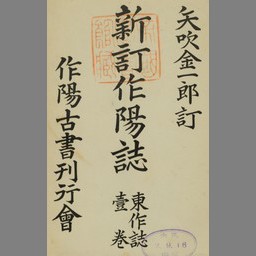 矢吹金一郎訂
新訂作陽誌
東作誌
壹卷
作陽古書刊行會